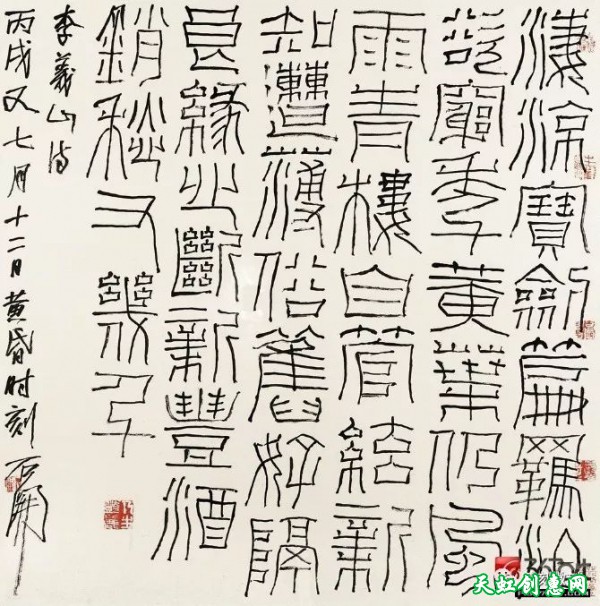 淒涼寶劍篇羈泊
欲窮年黃葉仍風
雨青樓自管絃新
知遭薄俗舊好隔
良緣心斷新豐酒
銷愁斗幾千
李義山诗
丙戌又七月十二日黄昏时刻 石開
天虹创意网